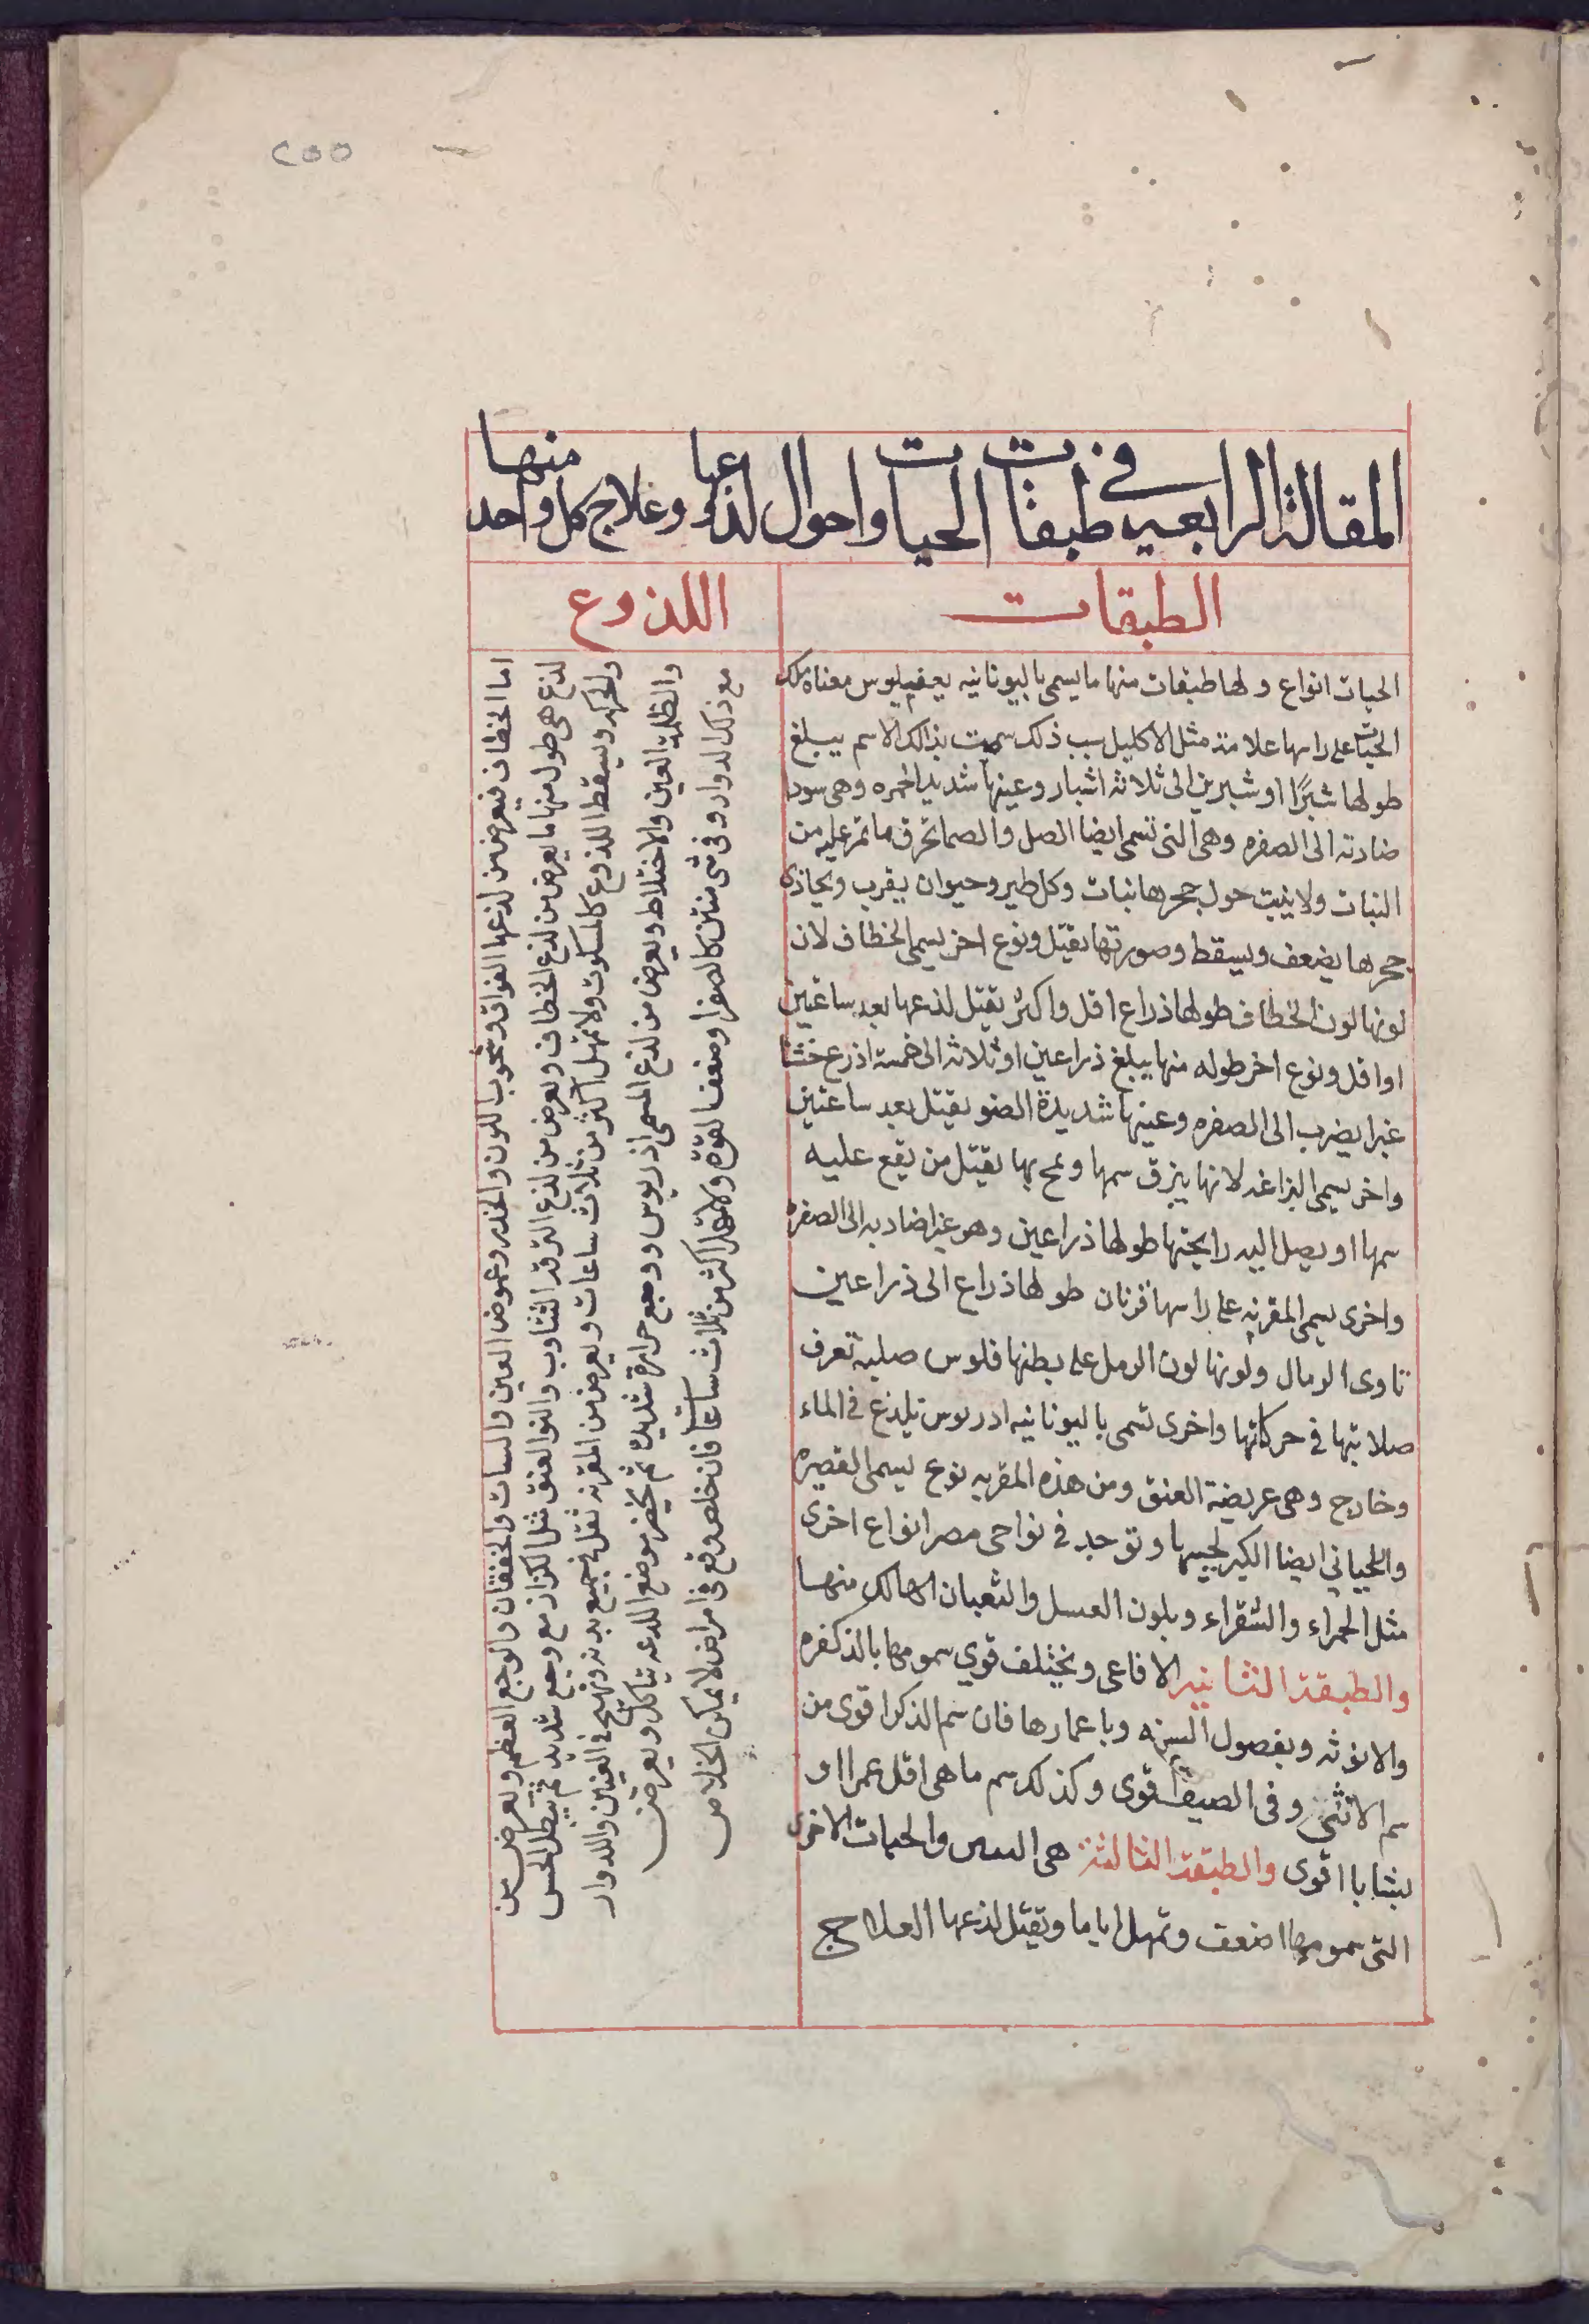 ٢٥٥
المقالة الرابعة في طبقات الحيات واحوال لذعها وعلاج كل واحد منها
الطبقات
الحيات انواع ولها طبقات منها ما يسمى باليونانيه معناه ملك
الحيات على راسها علامة مثل الاكليل سبب ذلك سميت بذالك الاسم يبلغ
طولها شبرًا او شبرين الى ثلاثه اشبار وعينها شديد الحمره وهى سودا
ضاربه الى الصفره وهى التى تسمى ايضا الصل والصما تحرق ما تمر عليه من
النبات ولا ينبت حول جحرها نبات وكل طير وحيوان يقرب ويحاذى
جحرها يضعف ويسقط وصورتها يقتل ونوع اخر يسمى الخطاف لان
لونها لون الخطاف طولها ذراع اقل واكثر يقتل لذعها بعد ساعتين
او اقل ونوع اخر طوله منها يبلغ ذراعين او ثلاثه الى خمسة اذرع
غبرا يضرب الى الصفره وعينها شديدة الضو يقتل بعد ساعتين
واخر يسمى البزاغه لانها يبزق سمها يقتل من يقع عليه
سمها او يصل اليه رايحتها طولها ذراعين وهو غبرا ضاربه الى الصفره
واخرى يسمى المقرنه على راسها قرنان طولها ذراع الى ذراعين
تاوى الرمال ولونها لون الرمل على بطنها فلوس صلبه تعرف
صلابتها في حركاتها واخرى تسمى باليونانيه ادريوس تلذغ في الماء
وخارج وهى عريضة العنق ومن هذه المقرنه نوع يسمى القصيره
واللحياني ايضا الكبر لحييها وتوجد في نواحى مصر انواع اخرى
مثل الحمراء والشقراء وبلون العسل والثعبان الهالك منها
والطبقة الثانيه الافاعى ويختلف قوي سمومها بالذكوره
والانوثه وبفصول السنه وباعمارها فان سم الذكر اقوى من
سم الانثى وفى الصيف اقوى وكذلك سم ما هى اقل عمرا او
بشبابا اقوى والطبقة الثالثة هى والحيات الاخرى
التى سمومها اضعف وتمهل اياما ويقتل لذعها العلاج
اللذوع
اما الخطاف فيعرض من لذعها الفواق وشحوب اللون والخدر وغموض العين والسبات والخفقان والوجع العظم ويعرض من
لذع هى طول منها ما يعرض من لذع الخطاف ويعرض من لذع التثاوب والتوا العنق مثل الكزاز مع وجع شديد ثم يبطل الحس
والحركه ويسقط اللذوع كالمسكوت ولا تمهل اكثر من ثلاث ساعات ويعرض من المقرنه ثقل في جميع بدنه وتهيج في العينين والدوار
والظلمة العين والاختلاط ويعرض من لذع المسمى اذريوس ووجع حرارة شديدة ثم يخضر موضع اللدغه تتاكل ويعرض
مع ذلك الدوار وقئ شى منتن كالصفرا وضعف القوه ولا تمهل اكثر من ثلاث ساعات فان خلص وقع في امراض لا يمكن الخلاص